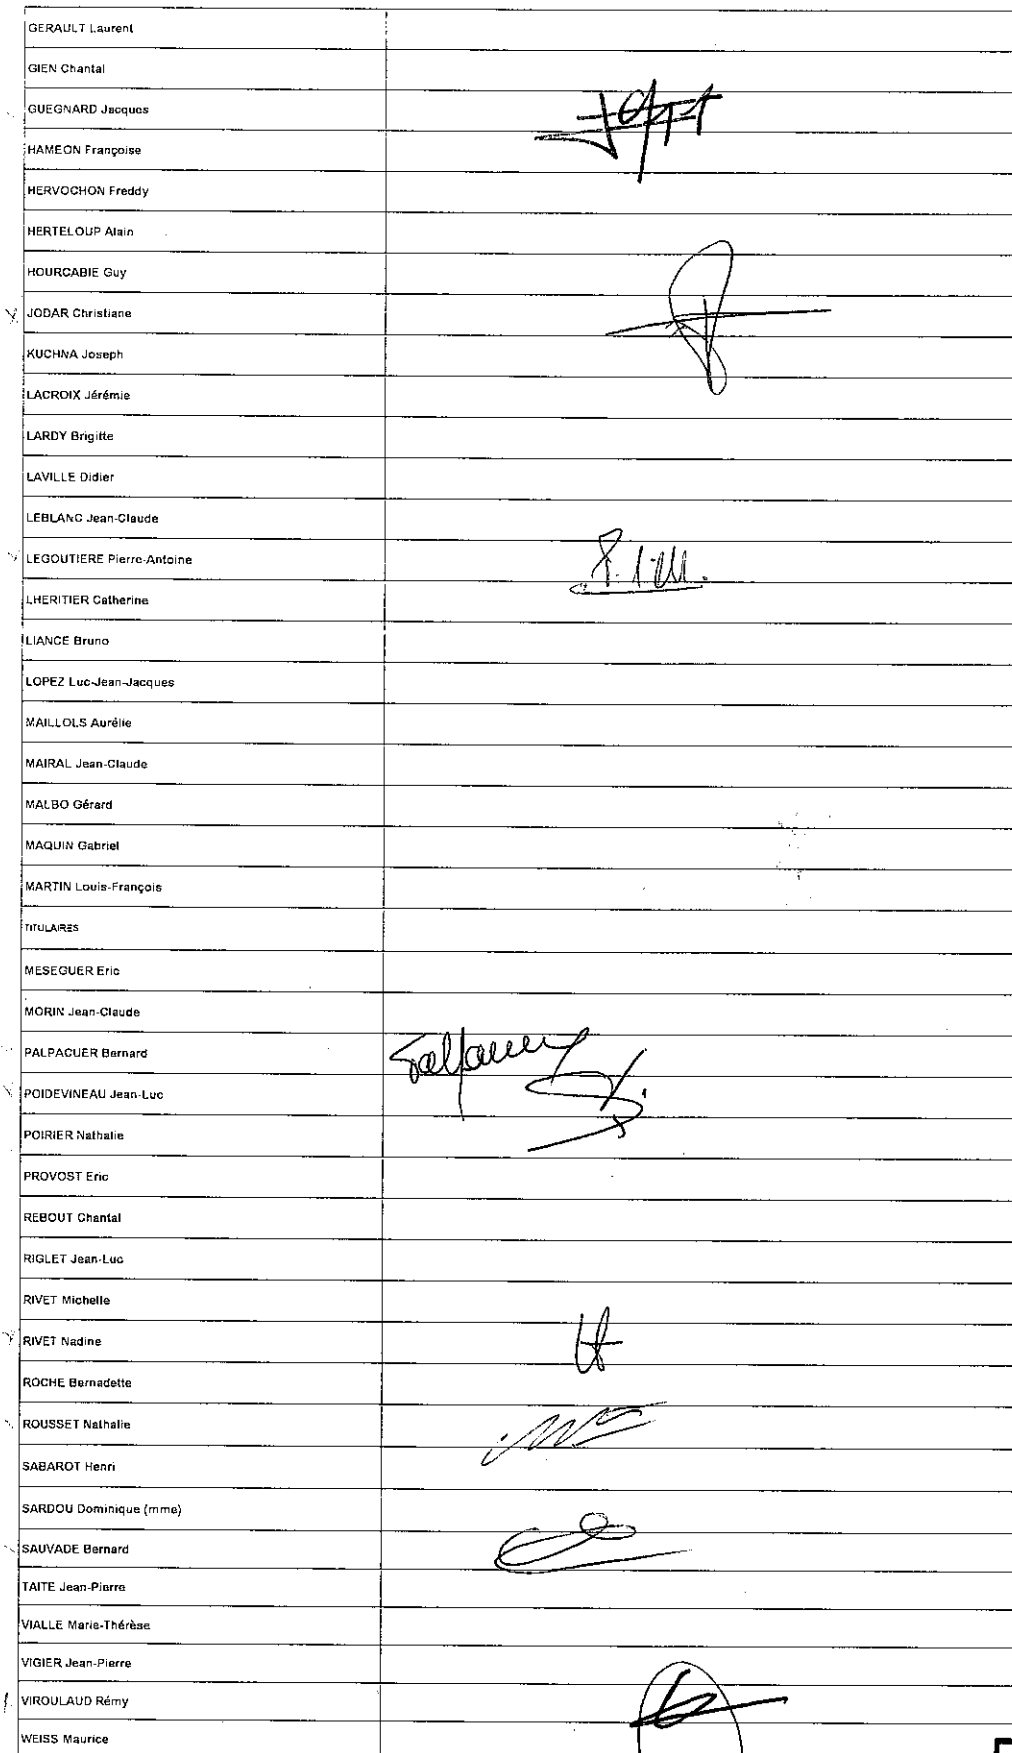 GERAULT Laurent
GIEN Chantal
GUEGNARD Jacques
HAMEON Françoise
HERVOCHON Freddy
HERTELOUP Alain
HOURCABIE Guy
JODAR Christiane
KUCHNA Joseph
LACROIX Jérémie
LARDY Brigitte
LAVILLE Didier
LEBLANC Jean-Claude
LEGOUTIERE Pierre-Antoine
LHERITIER Catherine
LIANCE Bruno
LOPEZ Luc-Jean-Jacques
MAILLOLS Aurélie
MAIRAL Jean-Claude
MALBO Gérard
MAQUIN Gabriel
MARTIN Louis-François
TITULAIRES
MESEGUER Eric
MORIN Jean-Claude
PALPACUER Bernard
POIDEVINEAU Jean-Luc
POIRIER Nathalie
PROVOST Eric
REBOUT Chantal
RIGLET Jean-Luc
RIVET Michelle
RIVET Nadine
ROCHE Bernadette
ROUSSET Nathalie
SABAROT Henri
SARDOU Dominique (mme)
SAUVADE Bernard
TAITE Jean-Pierre
VIALLE Marie-Thérèse
VIGIER Jean-Pierre
VIROULAUD Rémy
WEISS Maurice